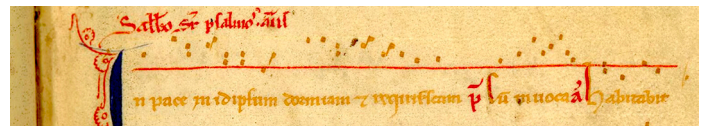 Sabbo sr psalmos añs
In pace in idipsum dormiam ⁊ requiescam p̄ Cū inuoca a Habitabit